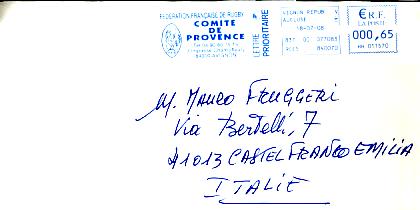 FEDERATION FRANÇAISE DE RUGBY
COMITE
DE
PROVENCE
84000 AVIGNON
LETTRE
PRIORITAIRE
AVIGNON REPUB
VAUCLUSE
18-07-08
840070
€ R.F.
LA POSTE
000,65
HH 011570
M. MAURO FRUGGERI
Via Bertelli, 7
41013 CASTELFRANCO EMILIA
ITALIE